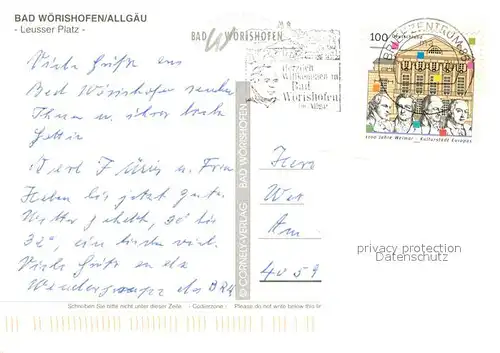 BAD WÖRISHOFEN/ALLGÄU
- Leusser Platz -
BAD WÖRISHOFEN
Viele Grüße aus
Bad Wörishofen senden
Ihnen u. ihrer
Gattin
u. Frau
Haben bis jetzt gutes
Wetter gehabt, 30° bis
32°, ein bischen viel.
Viele Grüße an die
Wandergruppe des DRK
© CORNELY-VERLAG BAD WÖRISHOFEN
Herzlich
Willkommen in
Bad
Wörishofen
im Allgäu
BRIEFZENTRUM 86
100
1100 Jahre Weimar - Kulturstadt Europas
Herr
Am
privacy protection
Datenschutz
Schreiben Sie bitte nicht unter dieser Zeile - Codierzone - Please do not write below this